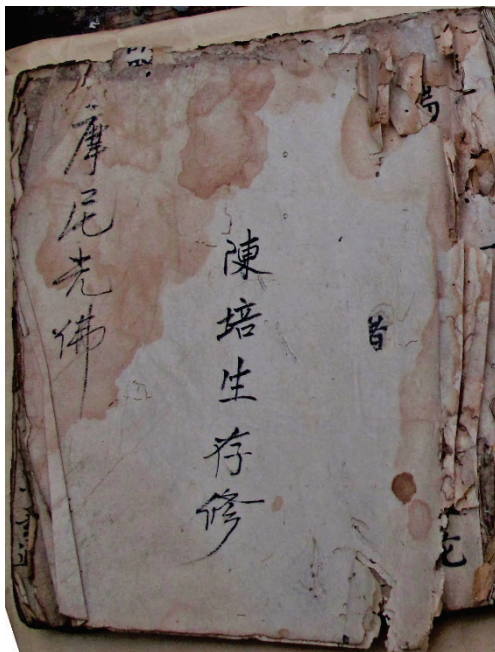 陳培生存修
摩尼光佛